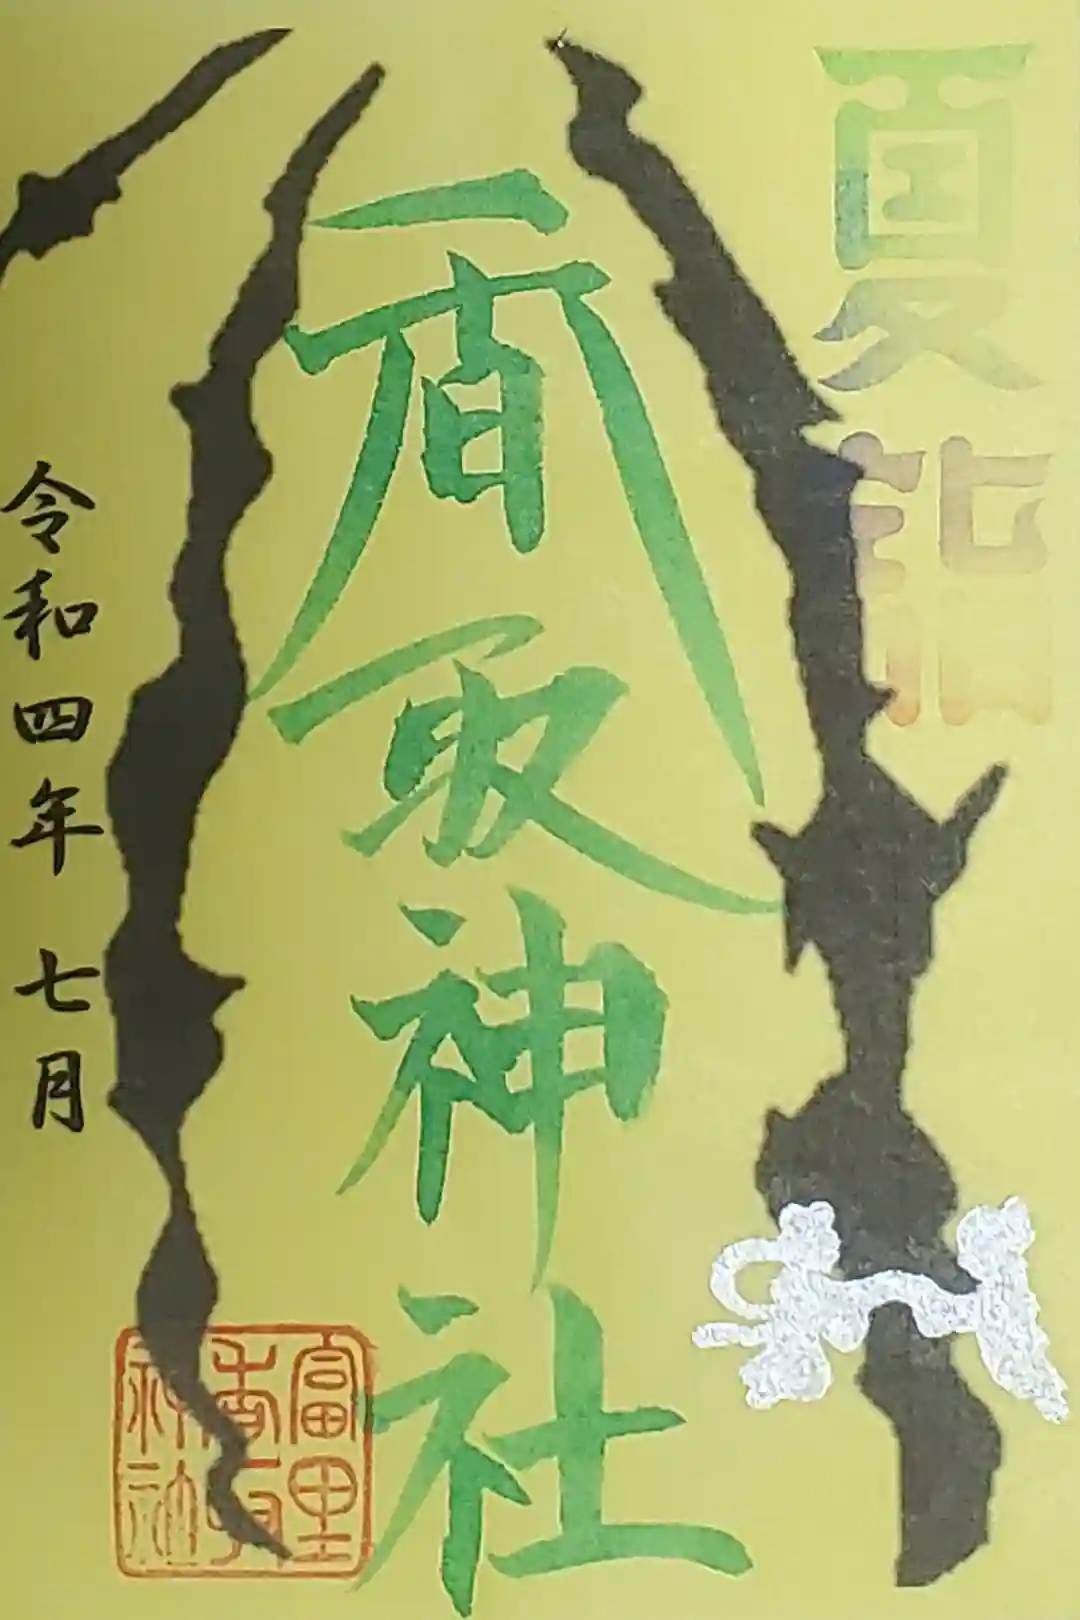 夏詣
香取神社
令和四年 七月
富里
香取
神社